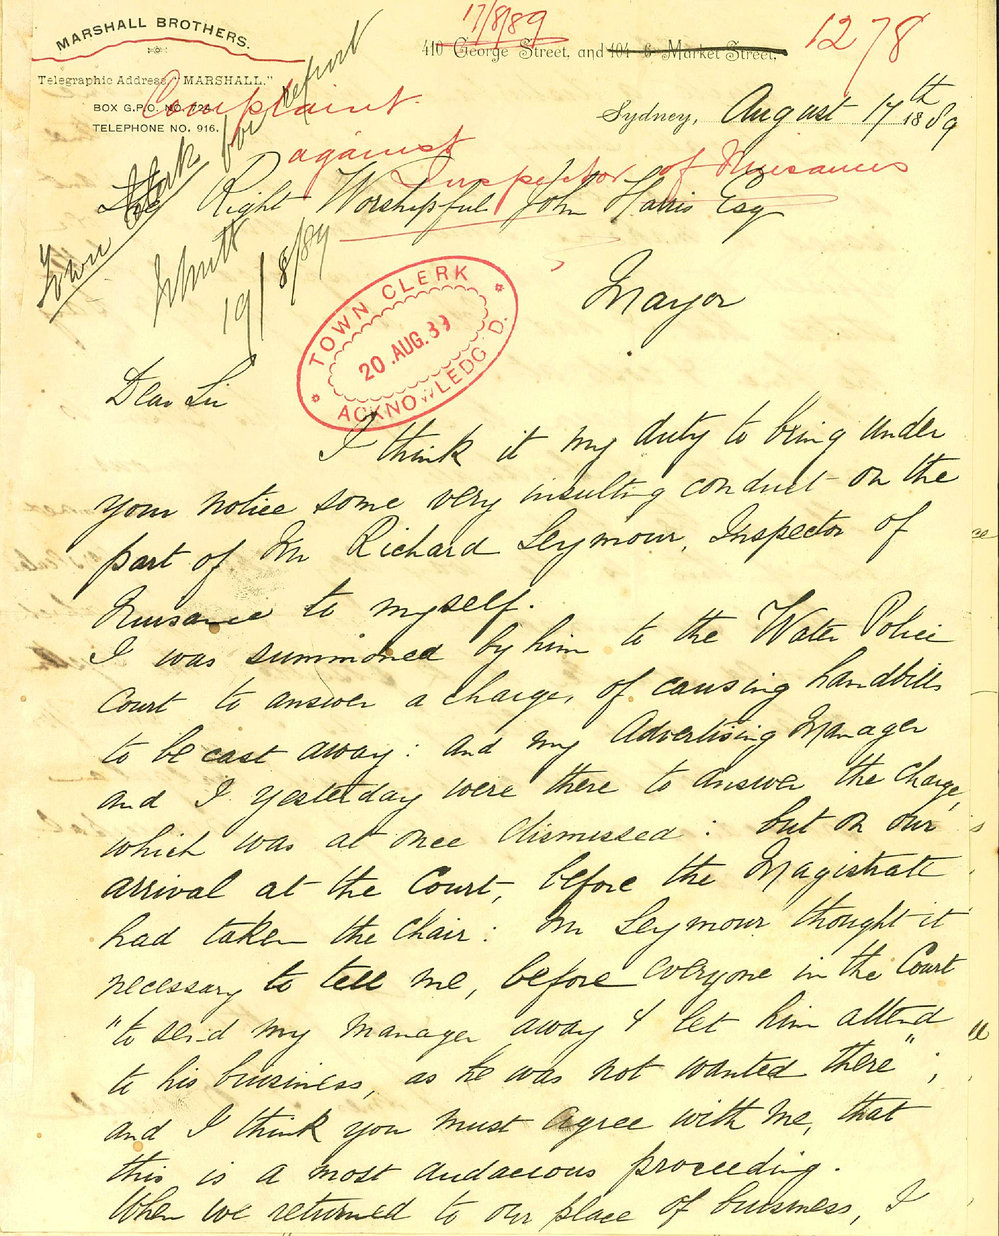 MARSHALL BROTHERS.
17/8/89
410 George Street, and 404 & Market Street.
1278
Telegraphic Address, "MARSHALL."
BOX G.P.O. NO. 724.
TELEPHONE NO. 916.
Complaint
against
Inspector of Nuisances
Sydney, August 17th 1889
Town Clerk for report
19/8/89
The Right Worshipful John Harris Esq
Mayor
TOWN CLERK
20 .AUG. 89
ACKNOWLEDG'D.
Dear Sir
I think it my duty to bring under
your notice some very insulting conduct on the
part of Mr Richard Seymour, Inspector of
Nuisance to myself.
I was summoned by him to the Water Police
Court to answer a charge, of causing handbills
to be cast away: and my Advertising Manager
and I yesterday were there to answer the charge,
which was at once dismissed: but on our
arrival at the Court, before the Magistrate
had taken the Chair: Mr Seymour thought it
necessary to tell me, before everyone in the Court
"to send my manager away & let him attend
to his business, as he was not wanted there";
and I think you must agree with me, that
this is a most audacious proceeding.
When we returned to our place of business, I